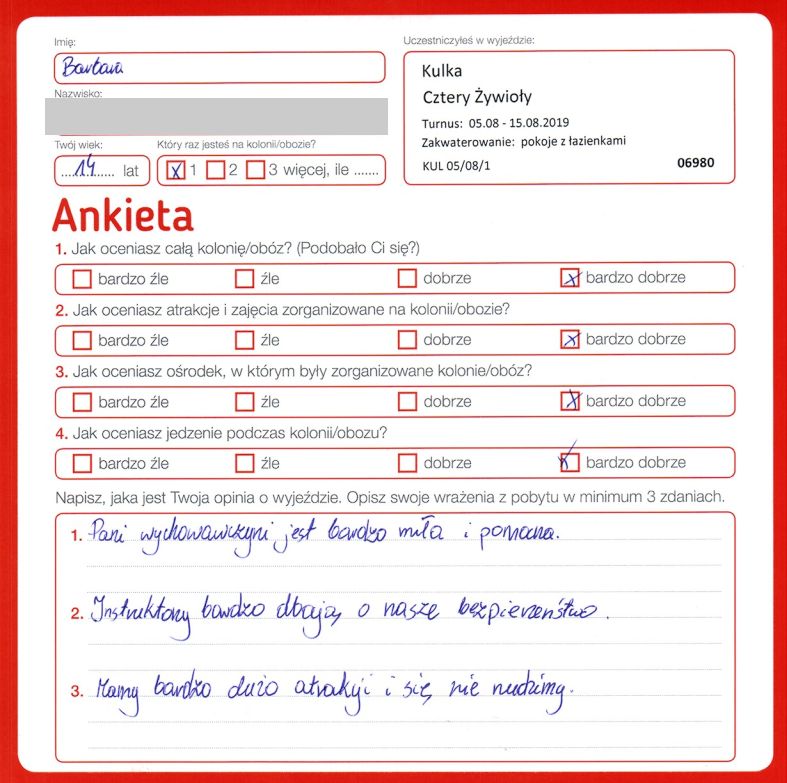 Imię:
Barbara
Uczestniczyłeś w wyjeździe:
Kulka
Cztery Żywioły
Turnus: 05.08 - 15.08.2019
Zakwaterowanie: pokoje z łazienkami
KUL 05/08/1 06980
Nazwisko:
Twój wiek:
....14...... lat
Który raz jesteś na kolonii/obozie?
x 1 2 3 więcej, ile .......
Ankieta
1. Jak oceniasz całą kolonię/obóz? (Podobało Ci się?)
bardzo źle źle dobrze x bardzo dobrze
2. Jak oceniasz atrakcje i zajęcia zorganizowane na kolonii/obozie?
bardzo źle źle dobrze x bardzo dobrze
3. Jak oceniasz ośrodek, w którym były zorganizowane kolonie/obóz?
bardzo źle źle dobrze x bardzo dobrze
4. Jak oceniasz jedzenie podczas kolonii/obozu?
bardzo źle źle dobrze x bardzo dobrze
Napisz, jaka jest Twoja opinia o wyjeździe. Opisz swoje wrażenia z pobytu w minimum 3 zdaniach.
1. Pani wychowawczyni jest bardzo miła i pomocna.
2. Instruktorzy bardzo dbają o nasze bezpieczeństwo.
3. Mamy bardzo dużo atrakcji i się nie nudzimy.